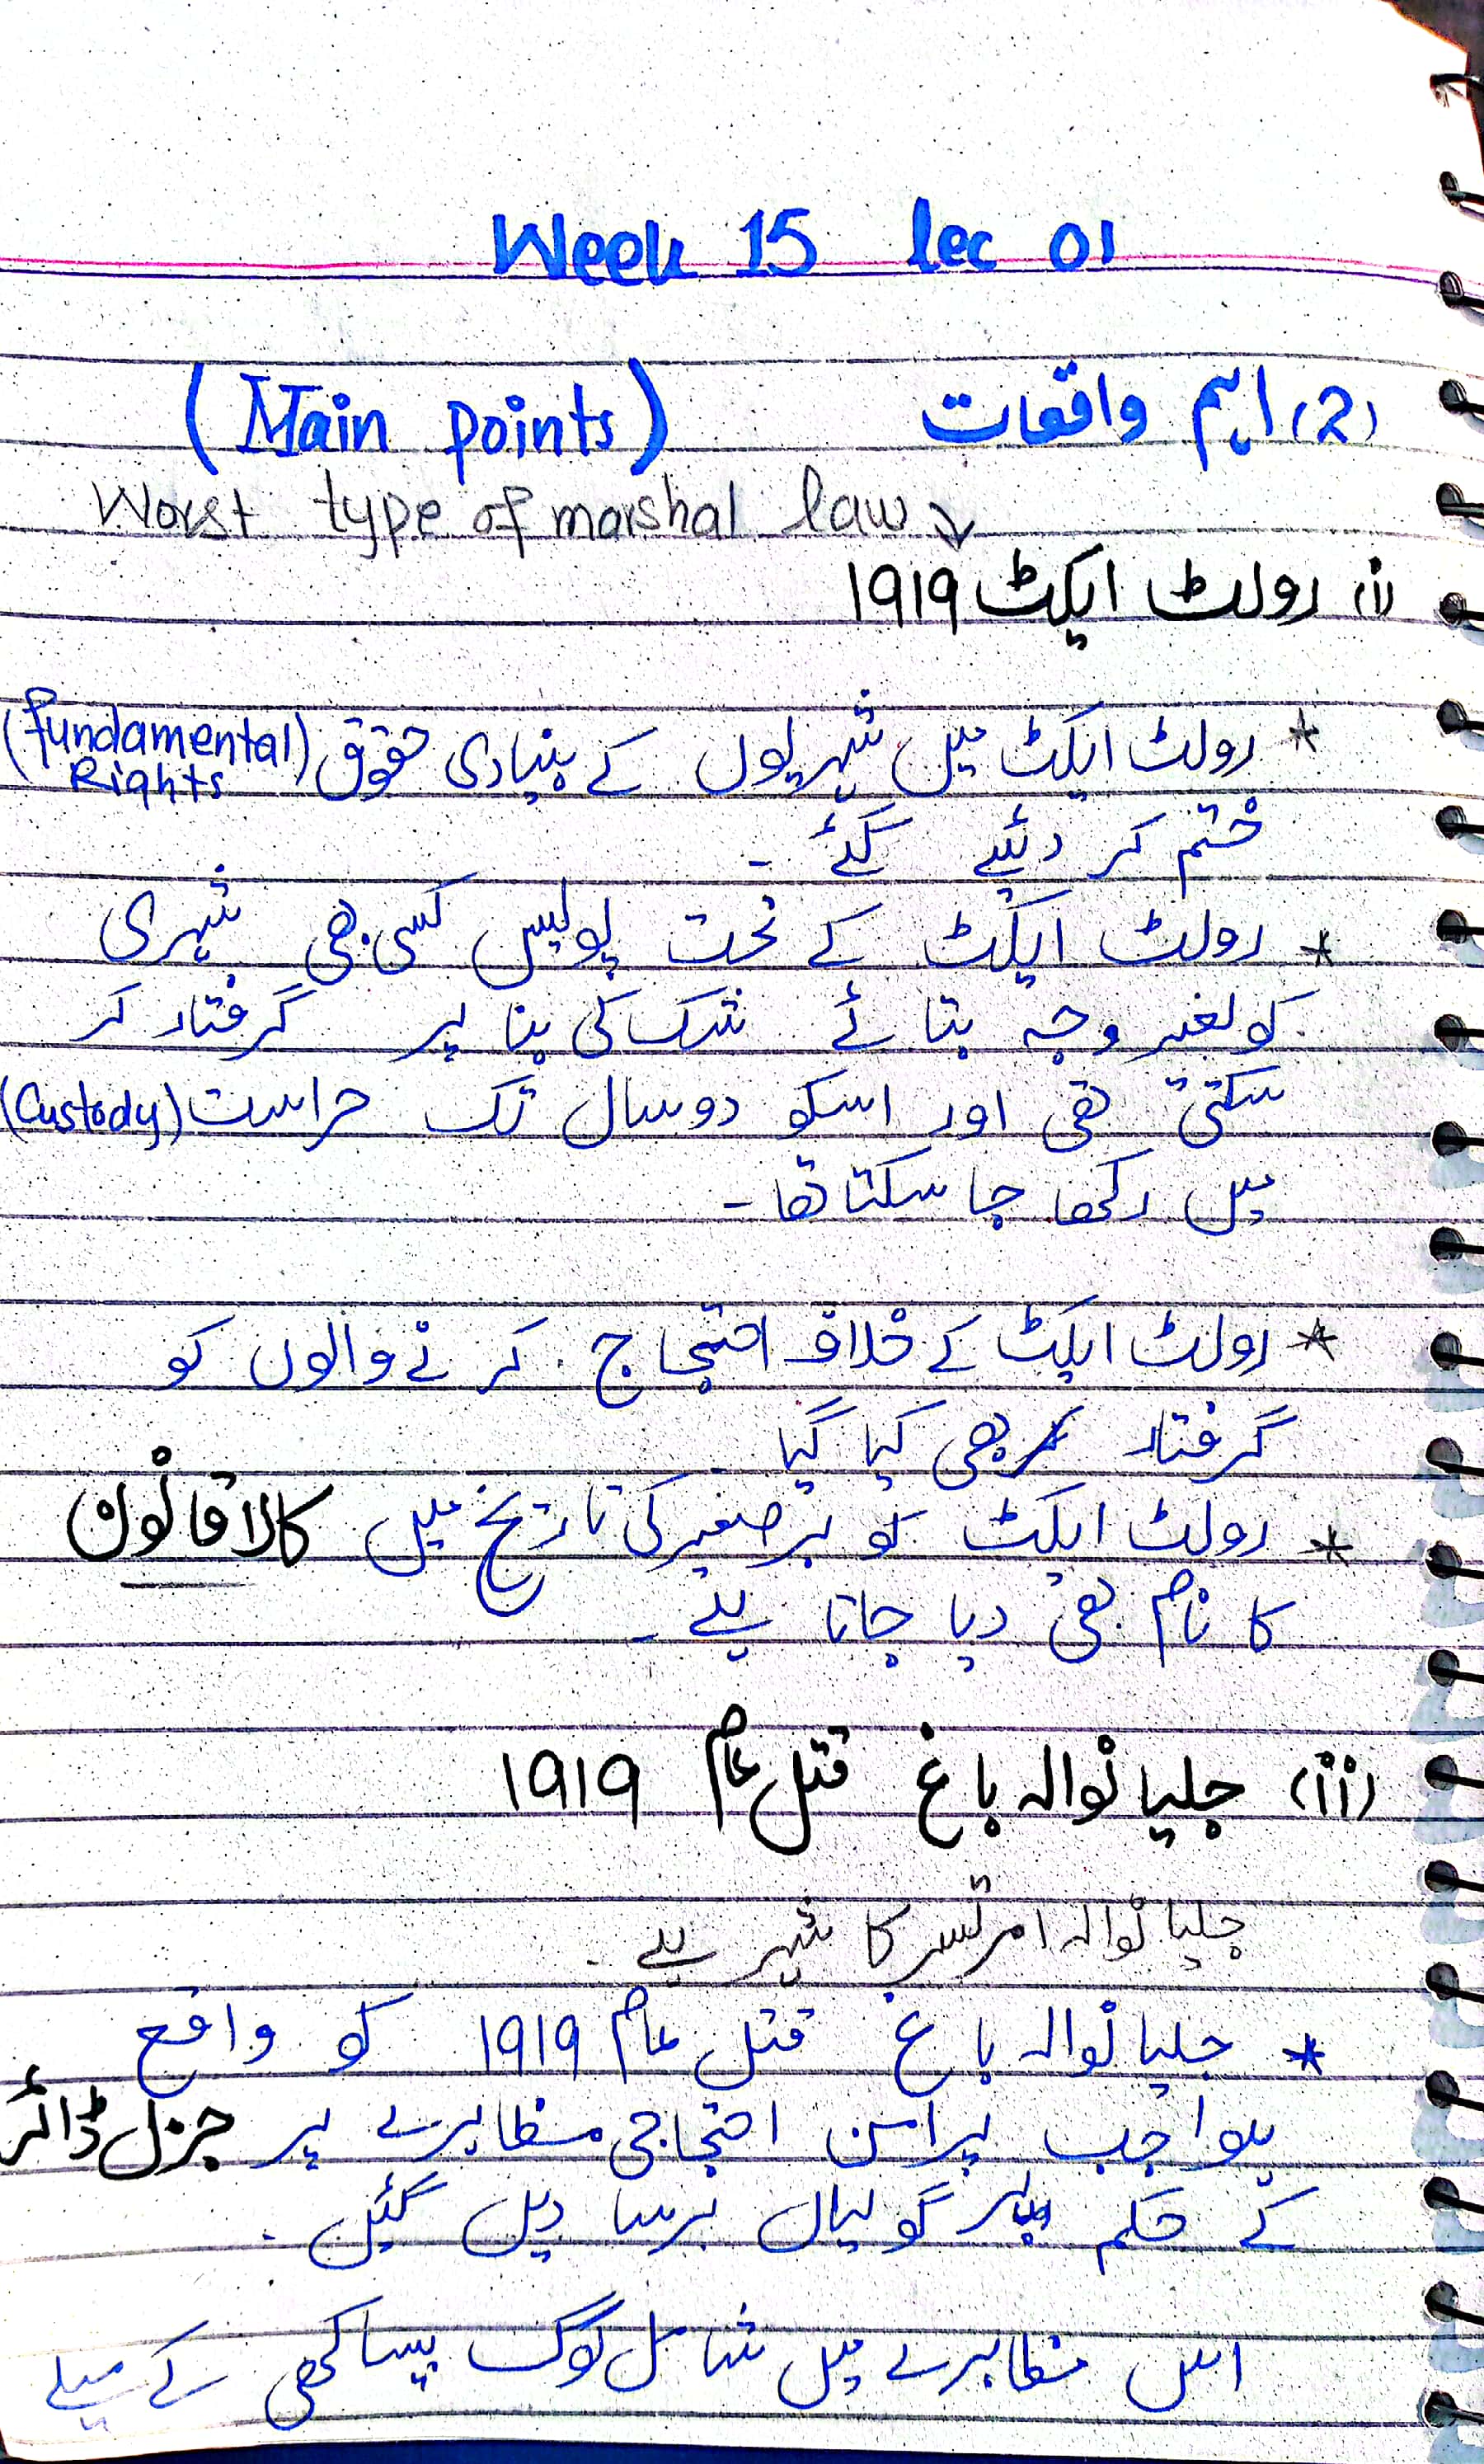 Week 15 lec 01
(2) اہم واقعات (Main points)
Worst type of marshal law ↓
(i) رولٹ ایکٹ 1919
* رولٹ ایکٹ میں شہریوں کے بنیادی حقوق (Fundamental Rights)
ختم کر دئیے گئے ۔
* رولٹ ایکٹ کے تحت پولیس کسی بھی شہری
کو بغیر وجہ بتائے شک کی بنا پر گرفتار کر
سکتی تھی اور اسکو دو سال تک حراست (Custody)
میں رکھا جا سکتا تھا ۔
* رولٹ ایکٹ کے خلاف احتجاج کرنے والوں کو
گرفتار بھی کیا گیا
* رولٹ ایکٹ کو برصغیر کی تاریخ میں کالا قانون
کا نام بھی دیا جاتا ہے ۔
(ii) جلیانوالہ باغ قتل عام 1919
جلیانوالہ امرتسر کا شہر ہے ۔
* جلیانوالہ باغ قتل عام 1919 کو واقع
ہوا جب پرامن احتجاجی مظاہرے پر جنرل ڈائر
کے حکم پر گولیاں برسا دیں گئیں ۔
اس مظاہرے میں شامل لوگ بیساکھی کے میلے